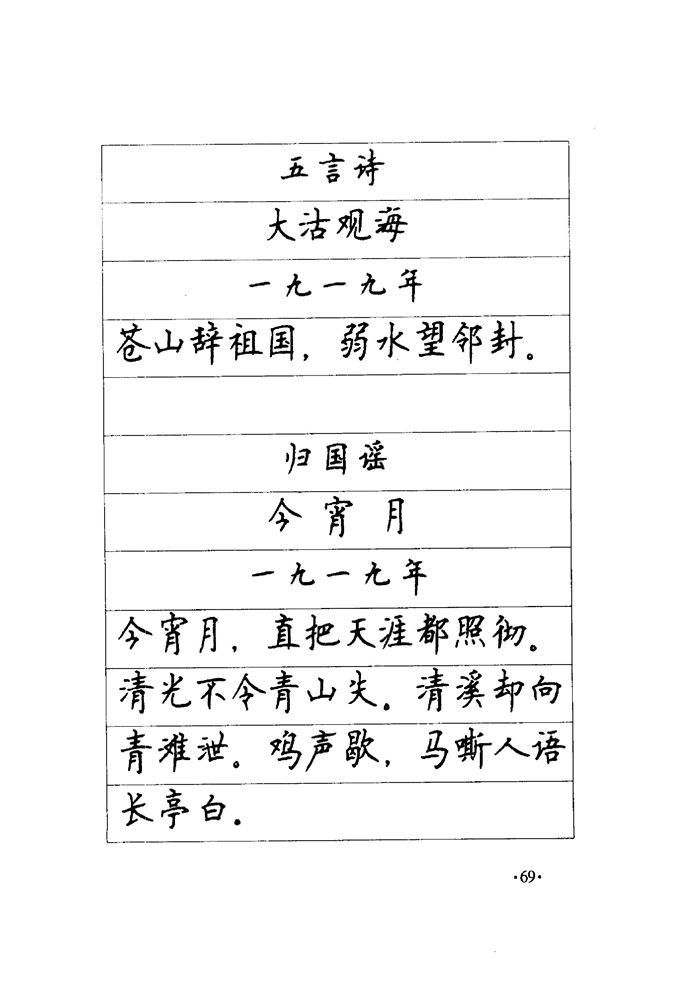 五言诗
大沽观海
一九一九年
苍山辞祖国，弱水望邻封。
归国谣
今宵月
一九一九年
今宵月，直把天涯都照彻。
清光不令青山失。清溪却向
青滩泄。鸡声歇，马嘶人语
长亭白。
·69·